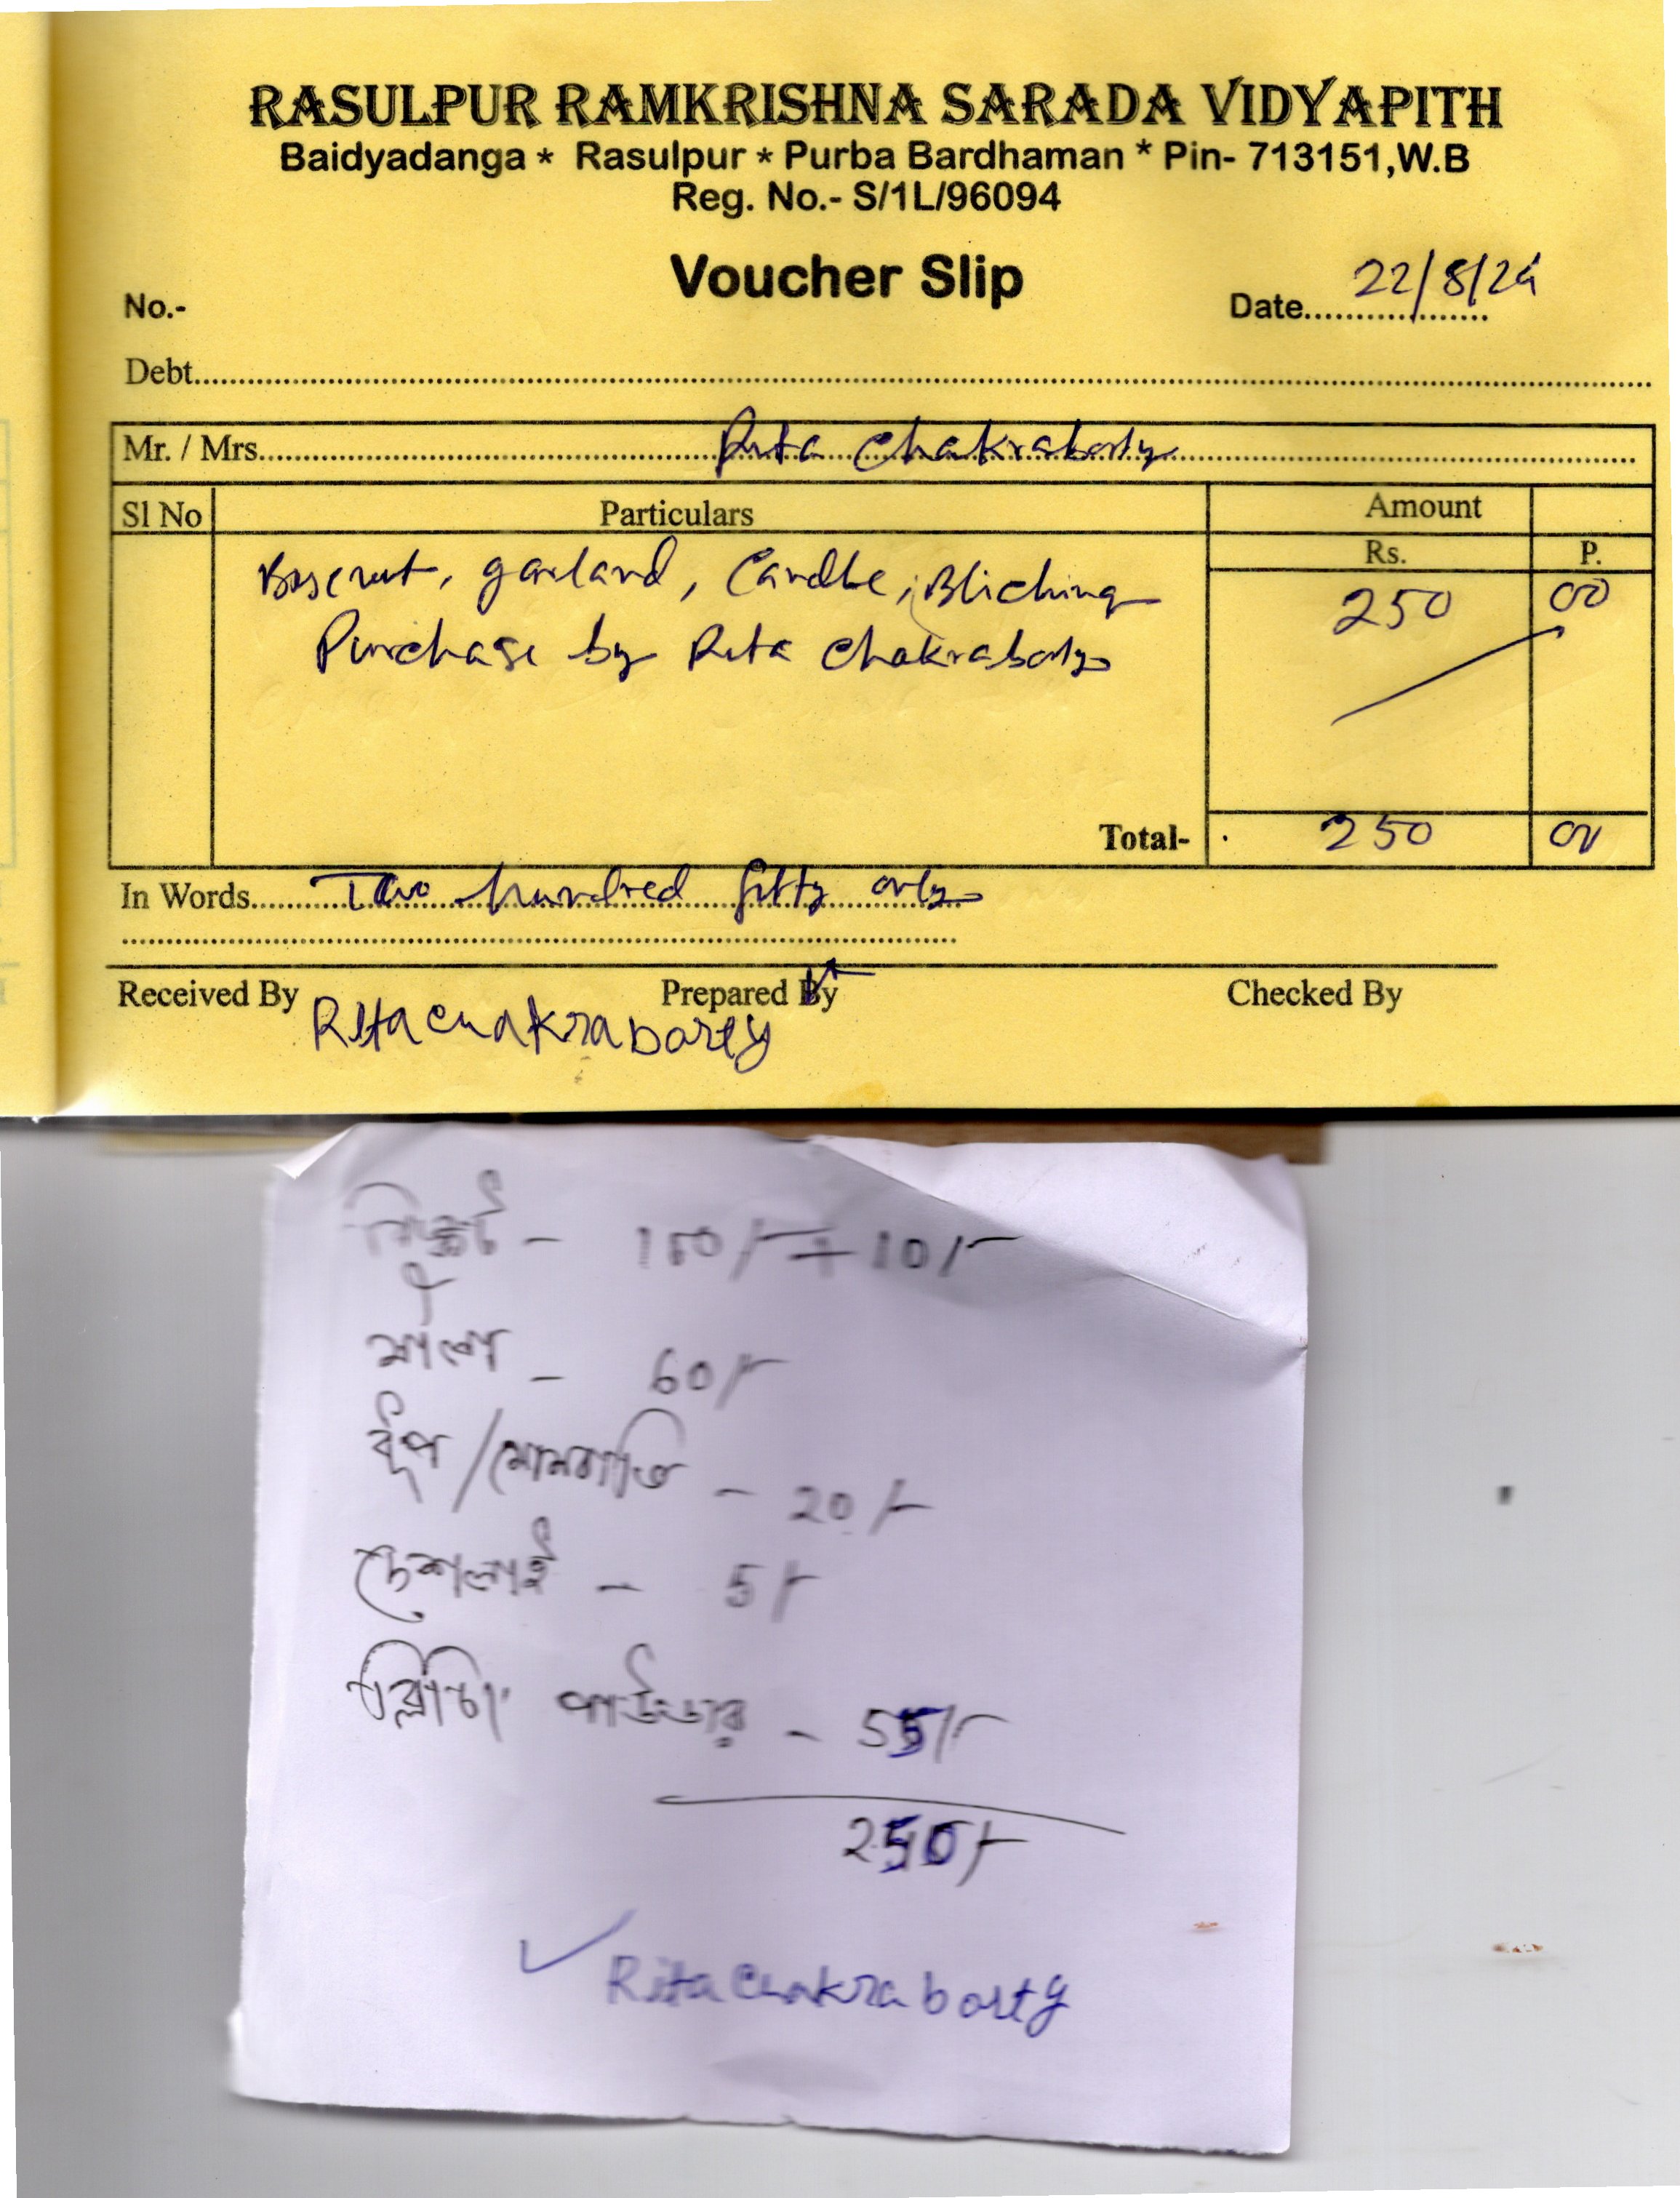 RASULPUR RAMKRISHNA SARADA VIDYAPITH
Baidyadanga * Rasulpur * Purba Bardhaman * Pin- 713151,W.B
Reg. No.- S/1L/96094
Voucher Slip
No.-
Date 22/8/24
Debt
Mr. / Mrs. Rita Chakraborty
Sl No Particulars Amount
Rs. P.
garland, Candle, Bliching 250 00
Purchase by Rita Chakraborty
Total- 250 00
In Words Two hundred fifty only
Received By Prepared By Checked By
Rita Chakraborty
বিস্কুট - 100/- + 10/-
মালা - 60/-
ধূপ / মোমবাতি - 20/-
দেশলাই - 5/-
ব্লিচিং পাউডার - 55/-
250/-
Rita Chakraborty